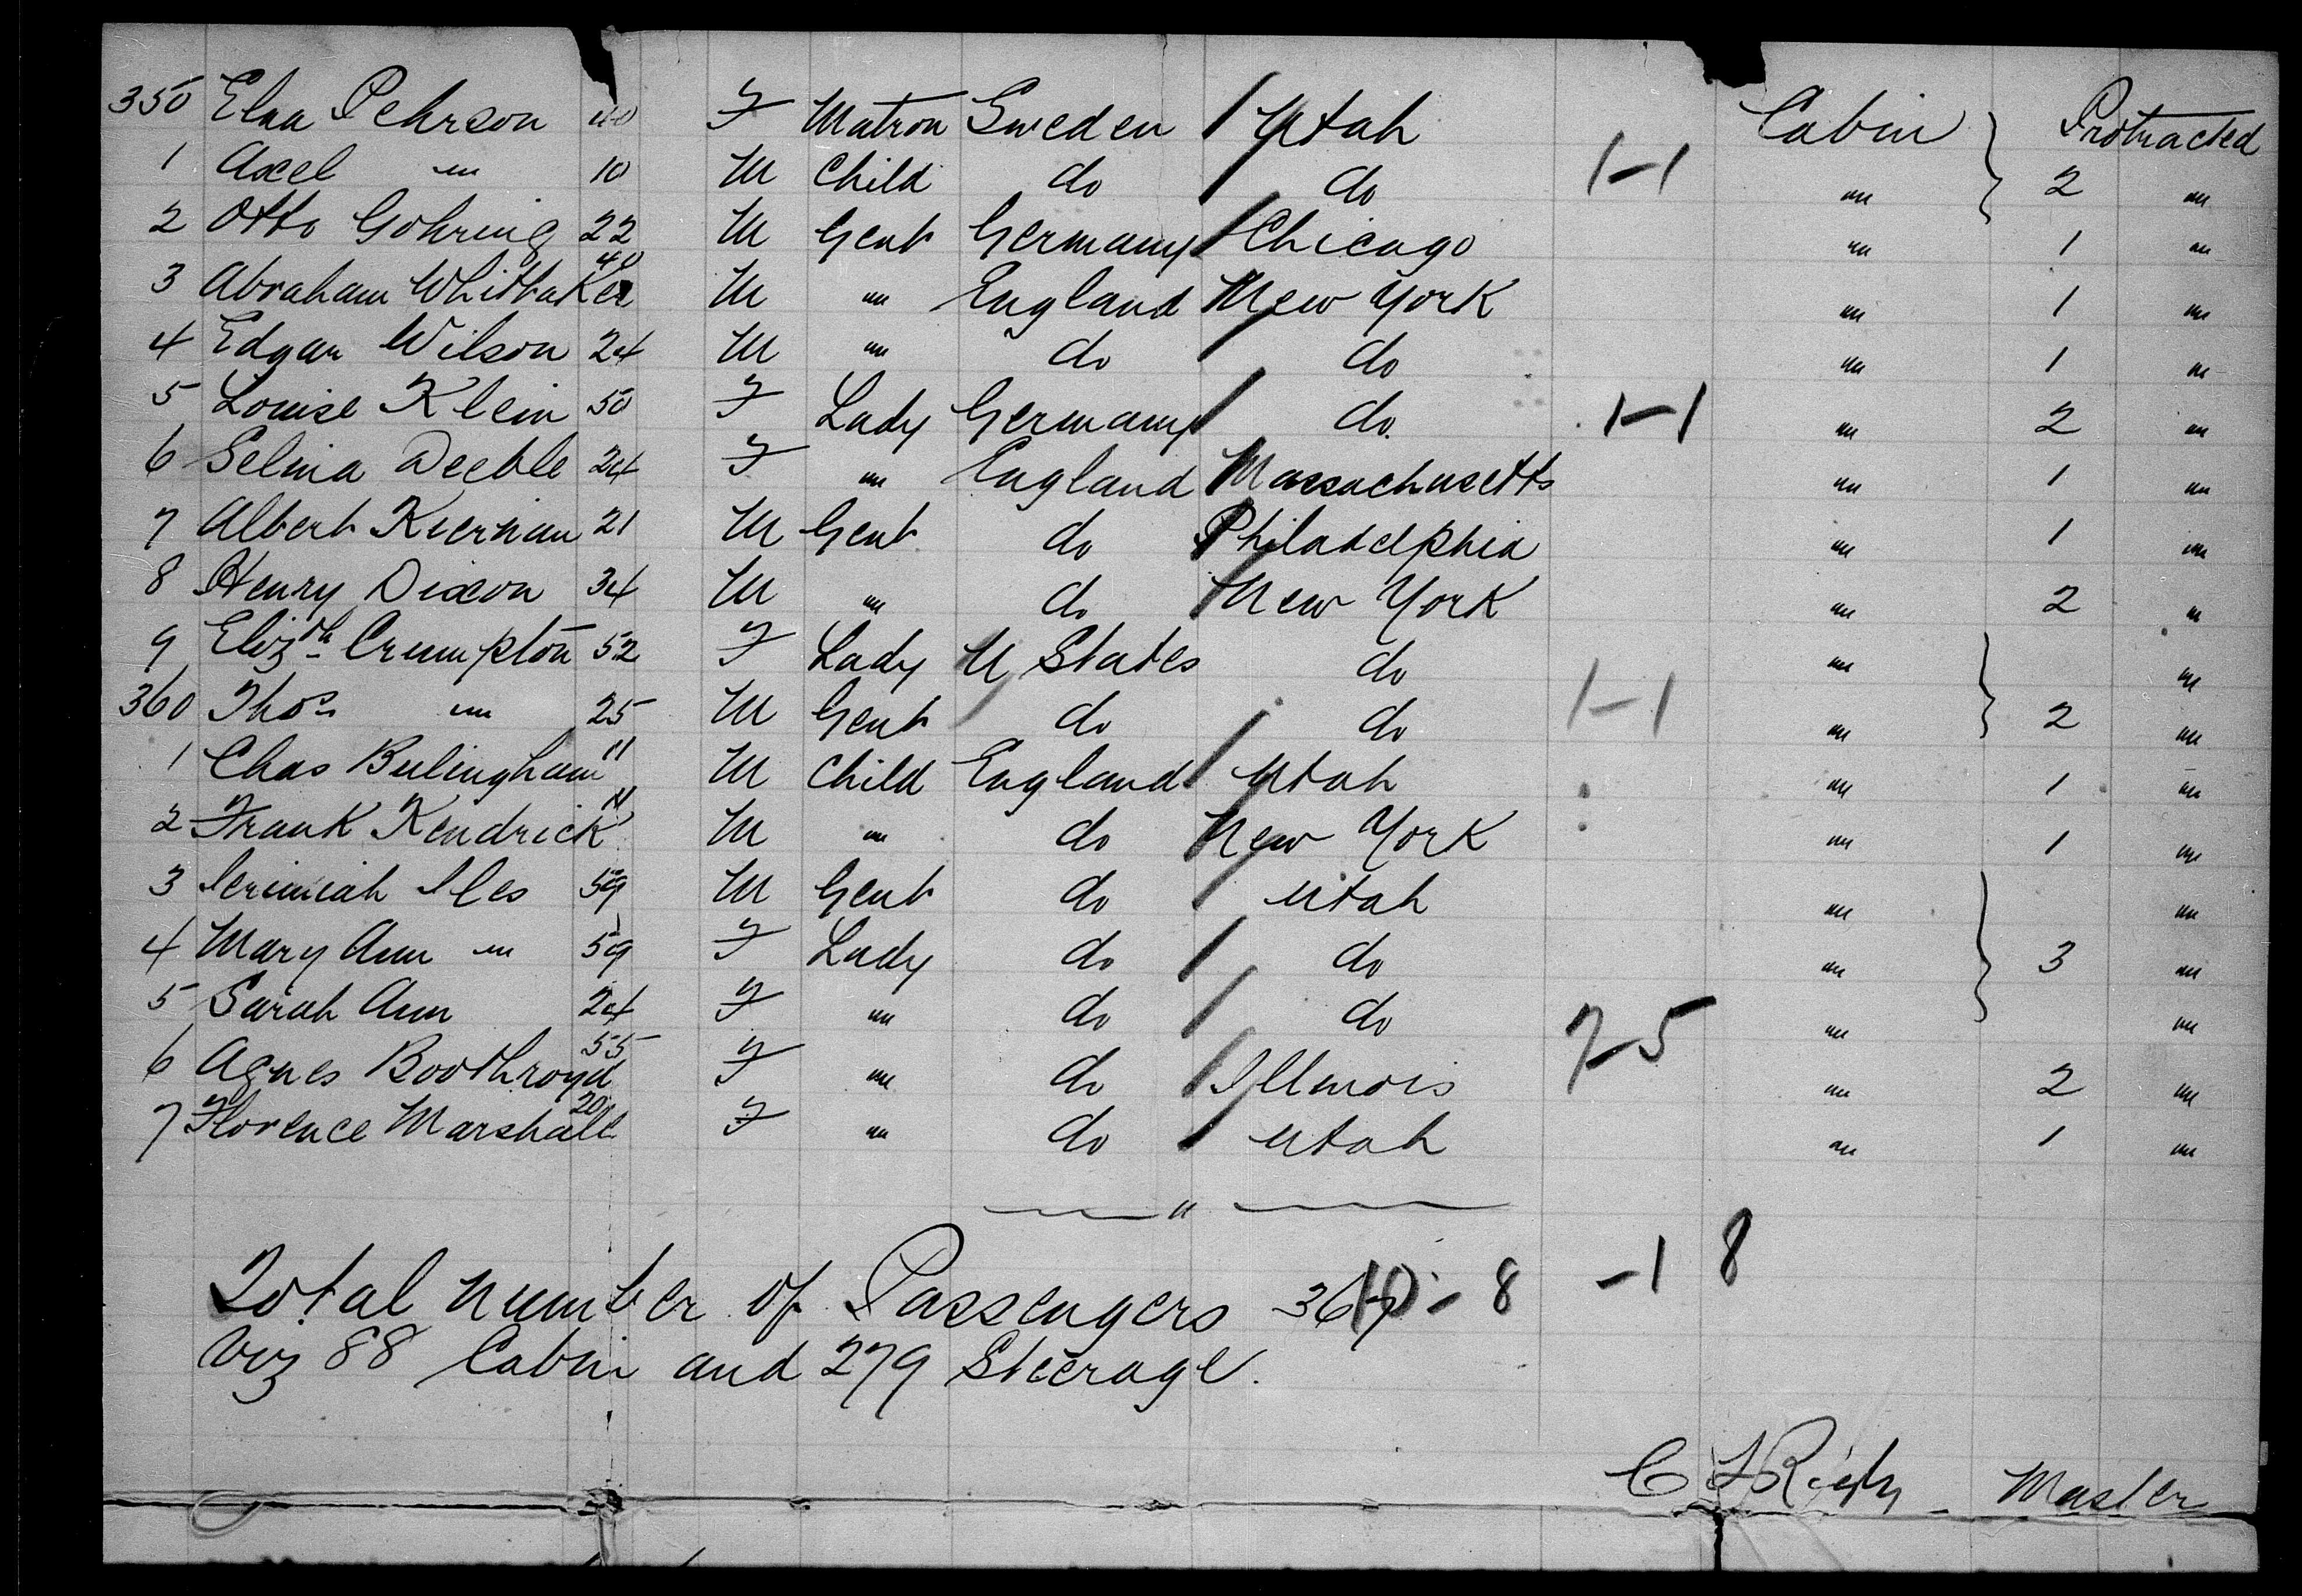 350 Elna Pehrson 40 F Matron Sweden Utah Cabin Protracted
1 Axel " 10 M Child do do 1-1 " 2 "
2 Otto Gohring 22 M Gent Germany Chicago " 1 "
3 Abraham Whittaker 40 M " England New York " 1 "
4 Edgar Wilson 24 M " do do " 1 "
5 Louise Klein 50 F Lady Germany do 1-1 " 2 "
6 Selina Deeble 24 F " England Massachusetts " 1 "
7 Albert Kiernan 21 M Gent do Philadelphia " 1 "
8 Henry Dixon 34 M " do New York " 2 "
9 Elizth Crumpton 52 F Lady U States do " "
360 Thos " 25 M Gent do do 1-1 " 2 "
1 Chas Bulingham 11 M Child England Utah " 1 "
2 Frank Kendrick 11 M " do New York " 1 "
3 Jerimiah Iles 59 M Gent do Utah " "
4 Mary Ann " 59 F Lady do do " 3 "
5 Sarah Ann 24 F " do do 7-5 " "
6 Agnes Boothroyd 55 F " do Illinois " 2 "
7 Florence Marshall 20 F " do Utah " 1 "
"
Total number of Passengers 367 10-8 -1 8
viz 88 Cabin and 279 Steerage.
Master